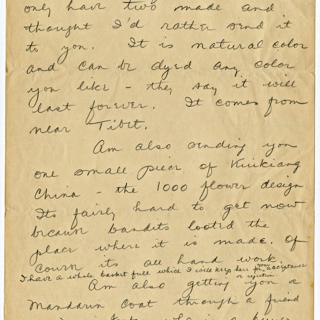 only have two made and
thought I'd rather send it
to you. It is natural color
and can be dyed any color
you like - they say it will
last forever. It comes from
near Tibet.
Am also sending you
one small piece of Kiukiang
China - the 1000 flower design
Its fairly hard to get now
because bandits looted the
place where it is made. Of
course its all hand work.
I have a whole basket full which I will
Am also getting you a
Mandarin Coat through a friend